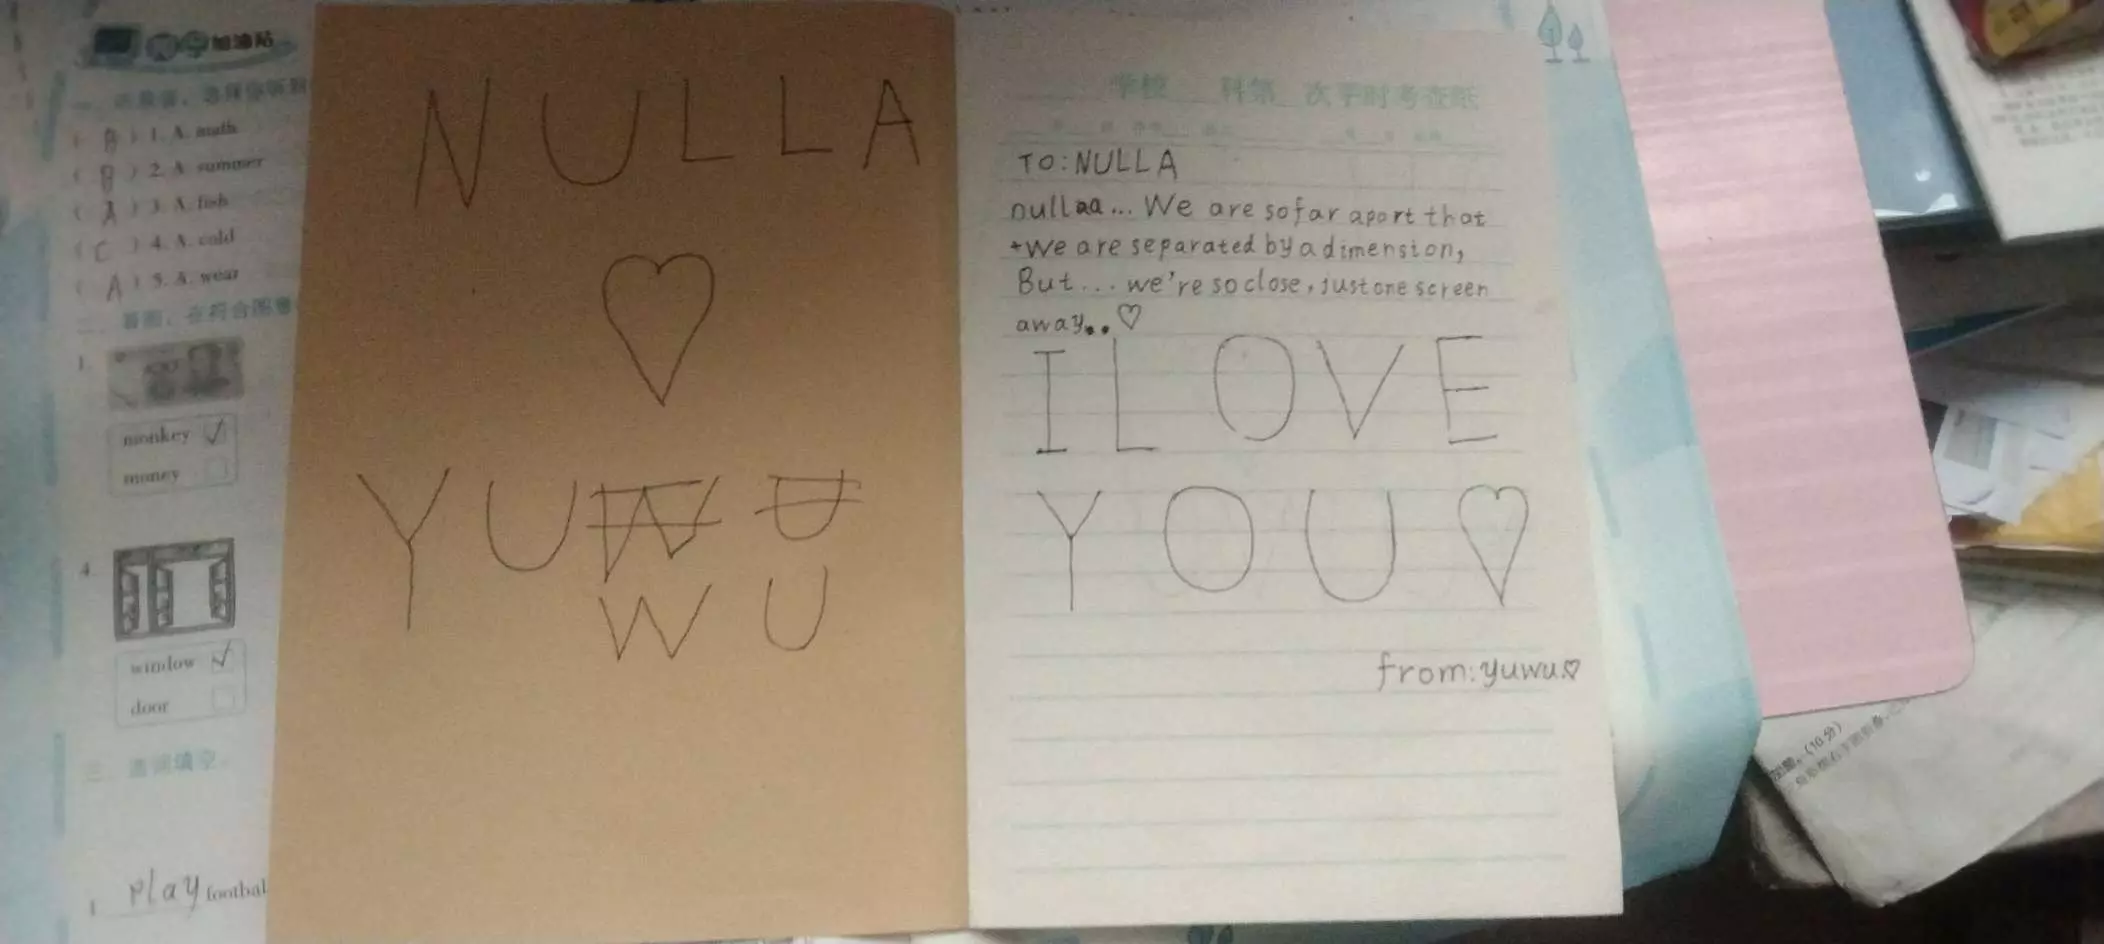 加油站
( B ) 1. A. math
( B ) 2. A. summer
( A ) 3. A. fish
( C ) 4. A. cold
( A ) 5. A. wear
1.
100
monkey ✓
money
4.
window ✓
door
三、选词填空。
1. play footbal
NULLA
♡
YUWU
WU
学校 科第 次平时考查纸
TO:NULLA
nullaa... We are so far apart that
we are separated by a dimension,
But... we're so close, just one screen
away..♡
I LOVE
YOU♡
from:yuwu♡
(10分)